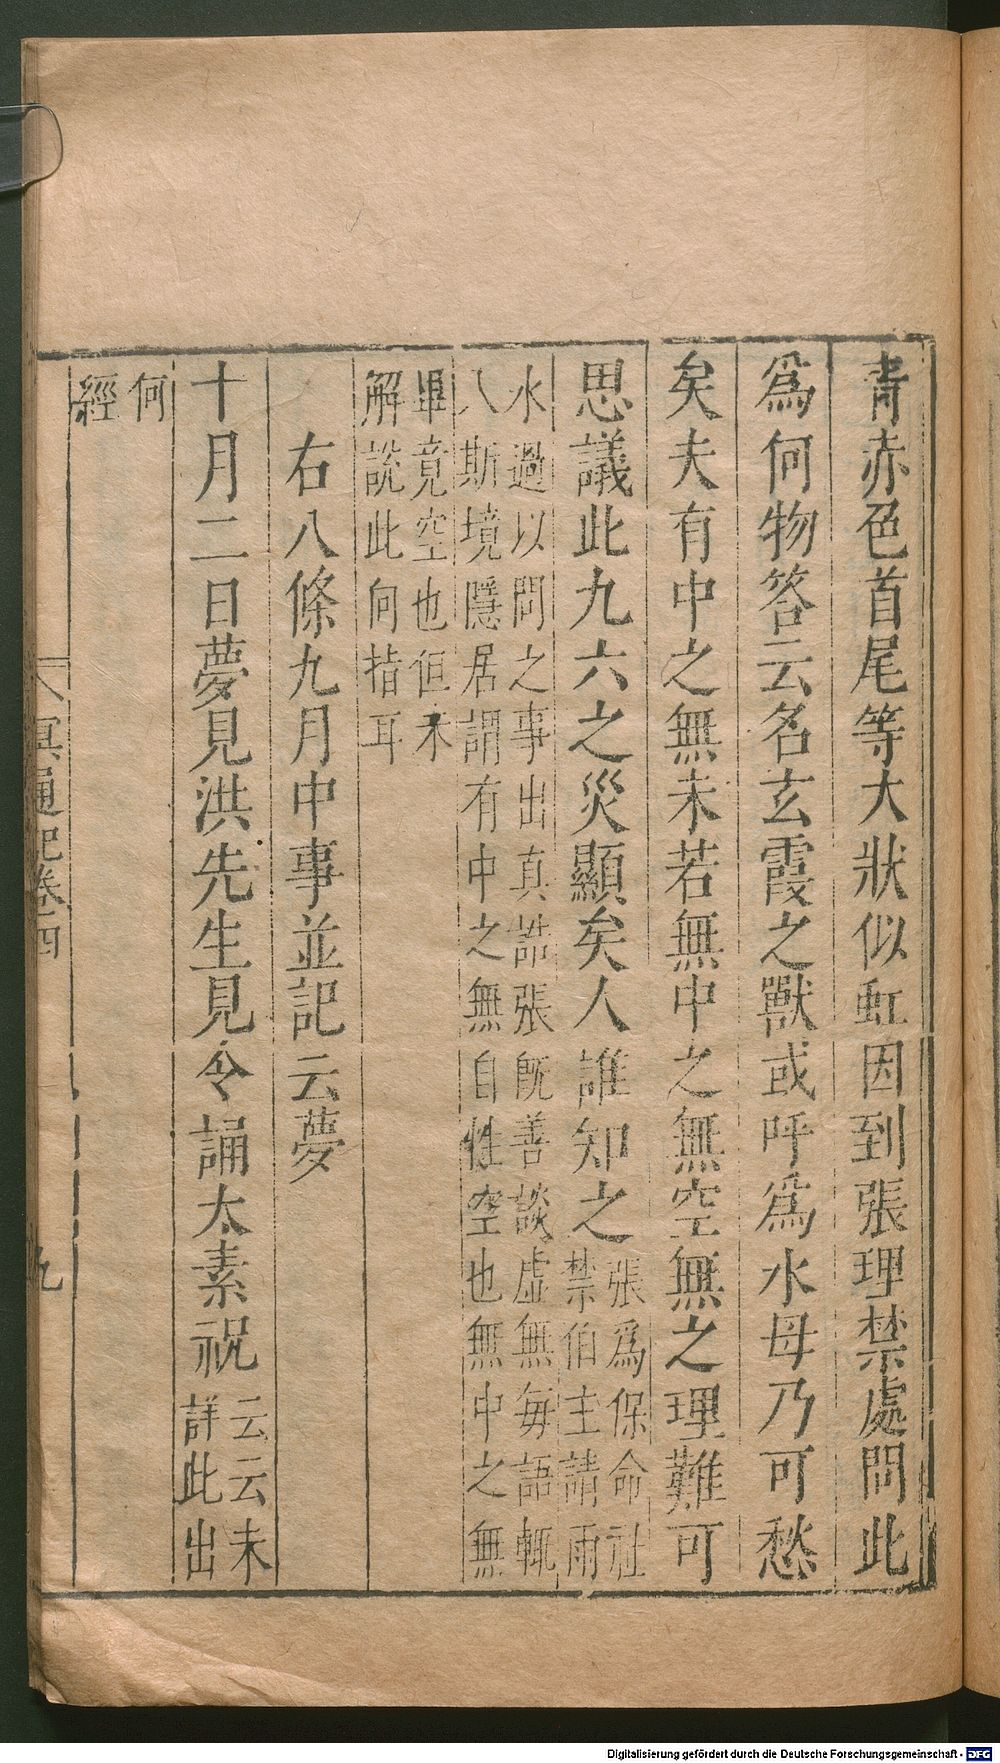 青赤色首尾等大狀似虹因到張理禁處問此
爲何物答云名玄霞之獸或呼爲水母乃可愁
矣夫有中之無未若無中之無空無之理難可
思議此九六之災顯矣人誰知之
張爲保命社
禁伯主請雨
水過以問之事出真誥張旣善談虛無每語輒
入斯境隱居謂有中之無自性空也無中之無
畢竟空也但未
解說此何指耳
右八條九月中事並記云夢
十月二日夢見洪先生見令誦太素祝
云云未
詳此出
何
經
冥通記卷四
九
Digitalisierung gefördert durch die Deutsche Forschungsgemeinschaft - DFG